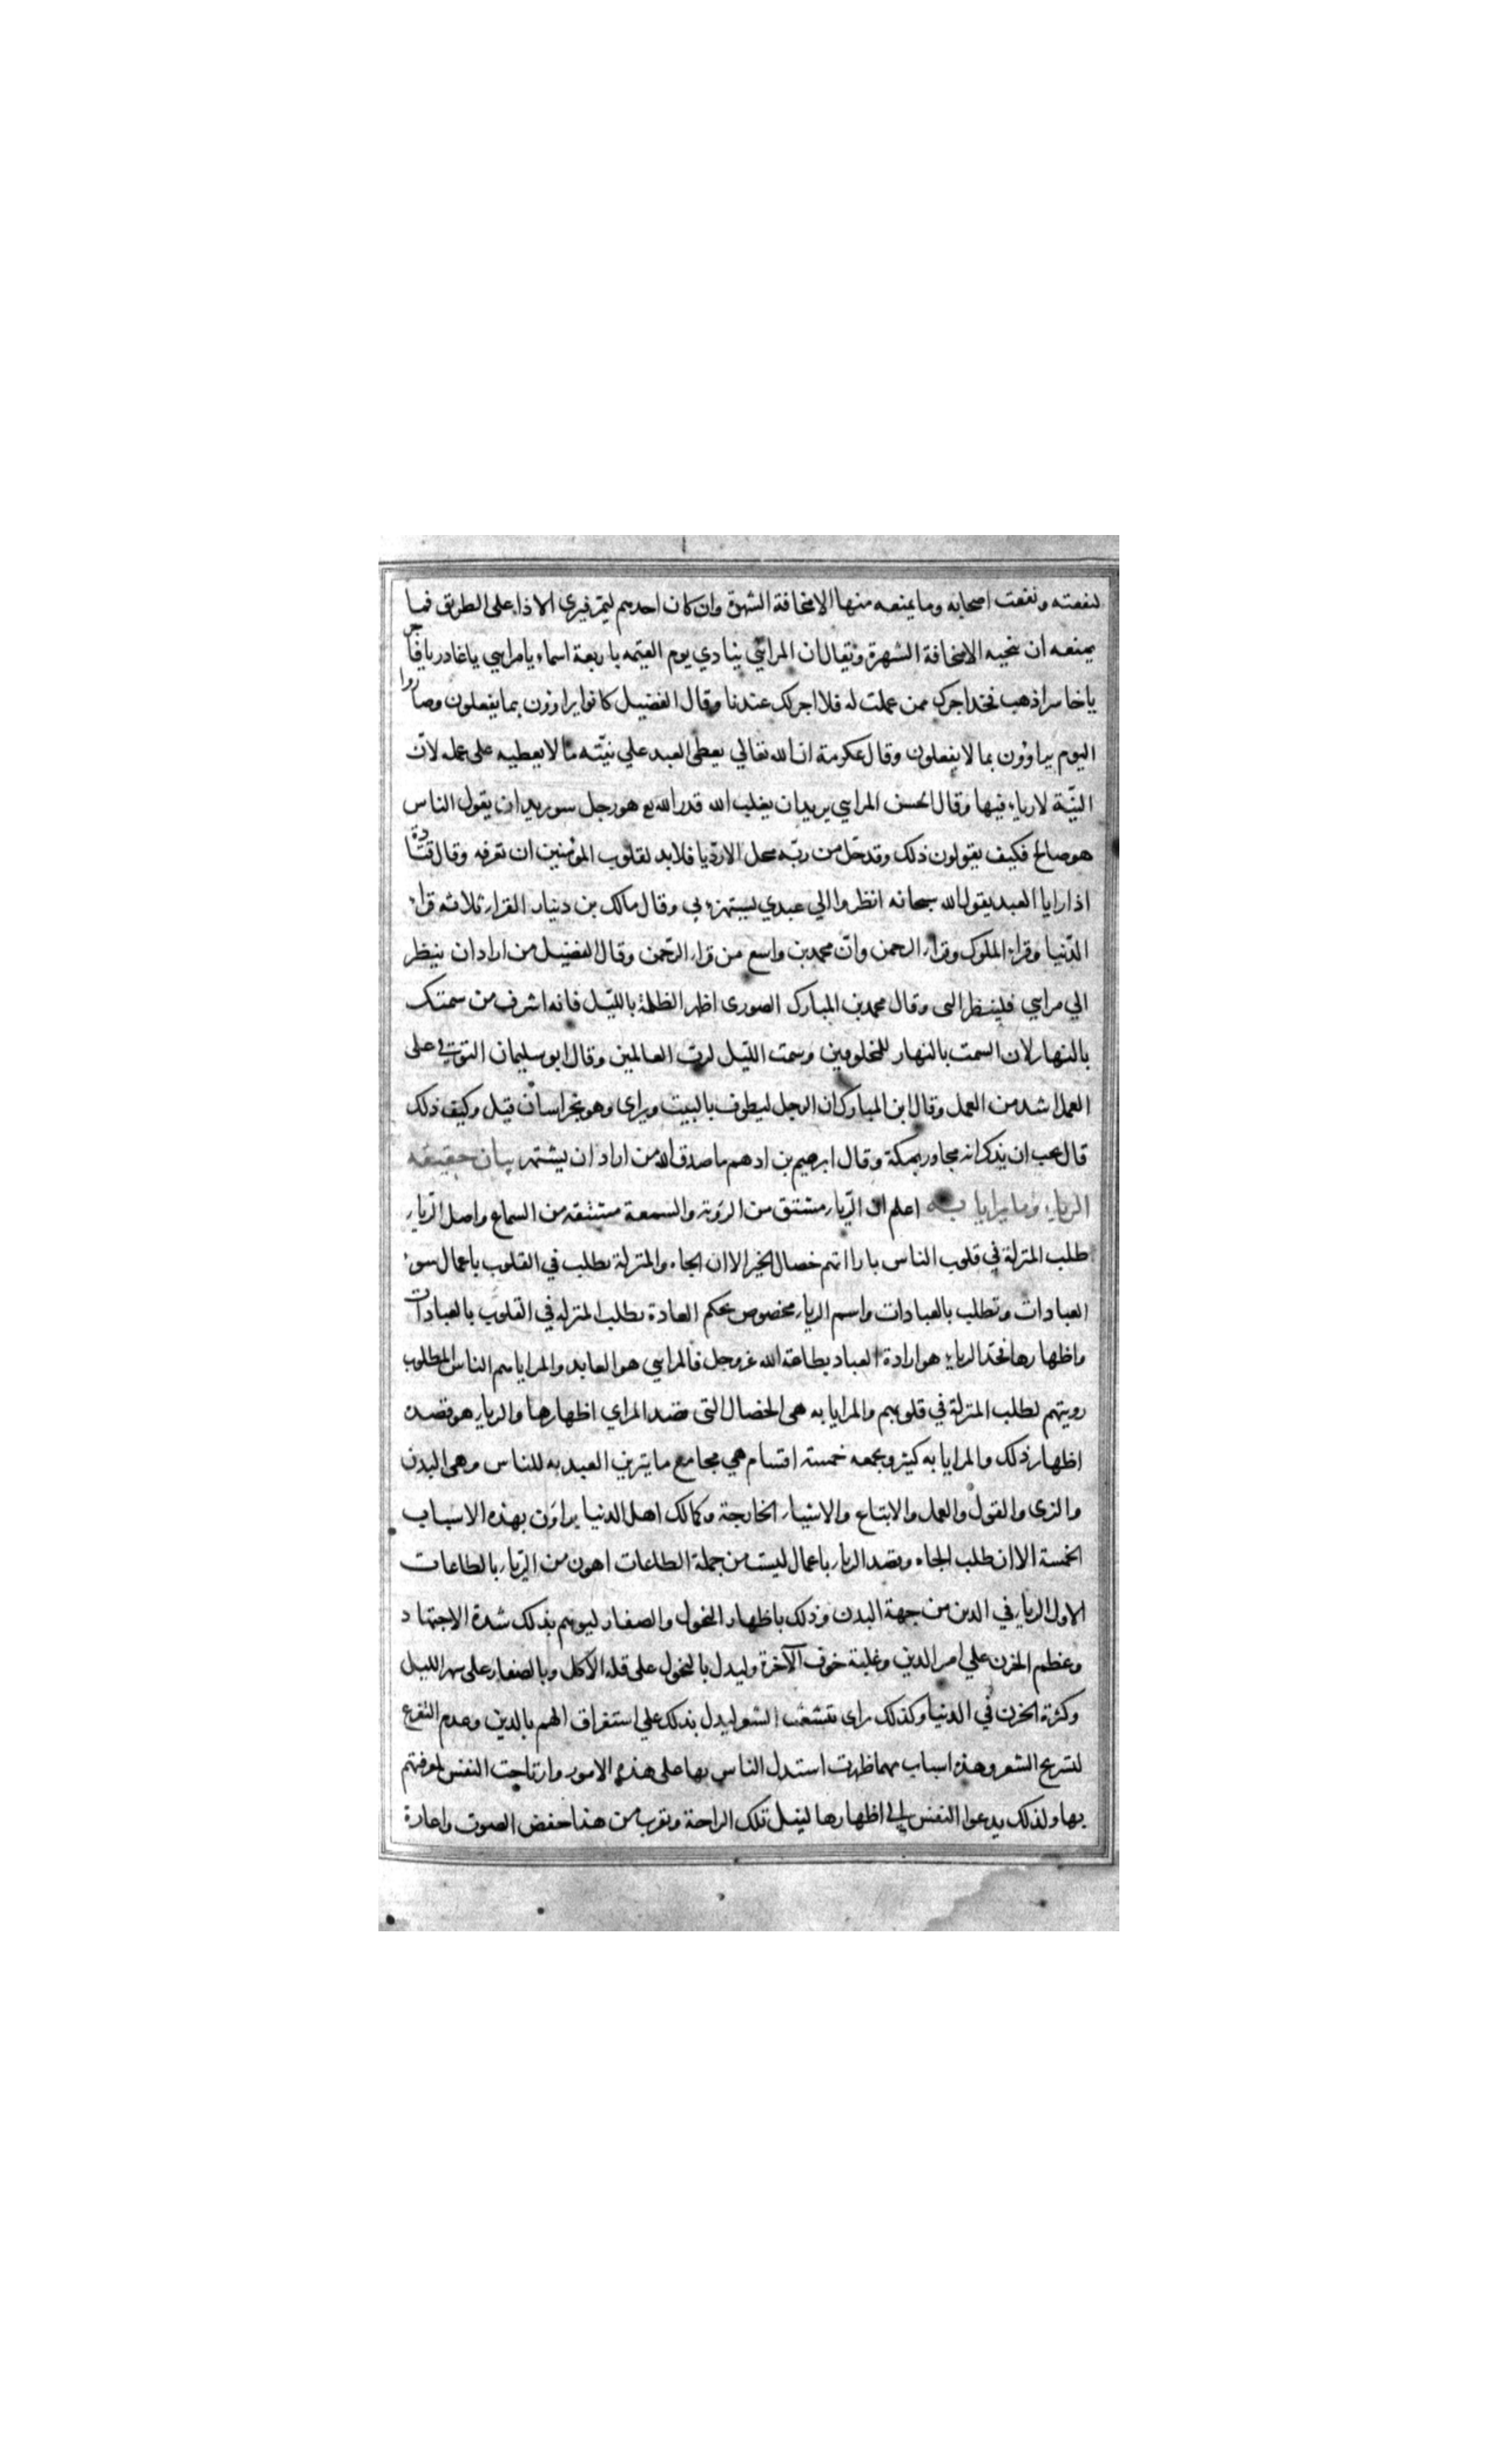 لنفعته ونفعت اصحابه وما يمنعه منها الا مخافة الشهرة وان كان احدهم ليمر فيرى الاذا على الطريق فما
يمنعه ان ينحيه الا مخافة الشهرة ويقال ان المرائي ينادي يوم القيمه باربعة اسماء يا مرايي يا غادر يا فاجر
يا خاسر اذهب فخذ اجرك ممن عملت له فلا اجر لك عندنا وقال الفضيل كانوا يراوون بما يفعلون وصاروا
اليوم يراوون بما لا يفعلون وقال عكرمة ان الله تعالي يعطى العبد علي نيّته ما لا يعطيه على عمله لانّ
النيّة لا رياء فيها وقال الحسن المرايي يريد ان يغلب الله قدر الله مع هو رجل سو يريد ان يقول الناس
هو صالح فكيف يقولون ذلك وقد حلّ من ربّه محل الارديا فلا بد لقلوب المؤمنين ان تعرفه وقال قتادة
اذا رايا العبد يقول الله سبحانه انظروا الي عبدي يستهزء بي وقال مالك بن دينار القراء ثلاثه قراء
الدّنيا وقراء الملوك وقراء الرحمن وانّ محمد بن واسع من قراء الرّحمن وقال الفضيل من اراد ان ينظر
الي مرايي فلينظر الى وقال محمد بن المبارك الصورى اظهر الظلمة بالليّل فانه اشرف من سمتك
بالنهار لان السمت بالنهار للمخلوقين وسمت اللّيل لربّ العالمين وقال ابو سليمان التوقي على
العمل اشد من العمل وقال ابن المبارك ان الرجل ليطوف بالبيت ويراى وهو بخراسان قيل وكيف ذلك
قال يحب ان يذكر انه مجاور بمكة وقال ابرهيم بن ادهم ما صدق الله من اراد ان يشتهر بيان حقيقه
الرياء وما يرايا به اعلم ان الرّياء مشتق من الرؤية والسمعة مشتقه من السماع واصل الرّياء
طلب المنزلة في قلوب الناس باراائهم خصال الخير الا ان الجاه والمنزلة يطلب في القلوب باعمال سوء
العبادات وتطلب بالعبادات واسم الرياء مخصوص بحكم العادة بطلب المنزله في القلوب بالعبادات
واظهارها فحدّ الرياء هو ارادة العباد بطاعة الله عز وجل فالمرايي هو العابد والمرايا هم الناس المطلوب
رويتهم لطلب المنزلة في قلوبهم والمرايا به هى الخصال التى قصد المراي اظهارها والرياء هو قصده
اظهار ذلك والمرايا به كثير ويجمعه خمسة اقسام هي مجامع ما يتزين العبد به للناس وهى البدن
والزى والقول والعمل والاتباع والاشياء الخارجة وكذلك اهل الدنيا يراؤن بهذه الاسباب
الخمسة الا ان طلب الجاه وقصد الرياء باعمال ليست من جملة الطاعات اهون من الرّياء بالطاعات
الاول الرياء في الدين من جهة البدن وذلك باظهار النحول والصفار ليوهم بذلك شدة الاجتهاد
وعظم الحزن علي امر الدين وغلبة خوف الآخرة وليدل بالنحول على قله الاكل وبالصفار على سهر الليل
وكثرة الحزن في الدنيا وكذلك يراى بتشعث الشعر ليدل بذلك علي استغراق الهم بالدين وعدم التفرغ
لتسريح الشعر وهذه اسباب مهما ظهرت استدل الناس بها على هذه الامور وارتاحت النفس لمعرفتهم
بها ولذلك يدعوا النفس الي اظهارها لينل تلك الراحة ويقرب من هذا خفض الصوت واغارة